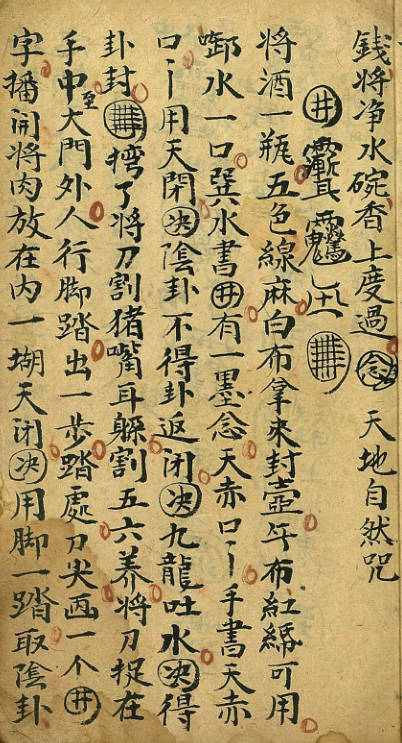 銭将净水碗香上度過㊢念 天地自然咒
井
将酒一瓶五色線麻白布拿来封壺午布紅綿可用
啣水一口巽水書井有一墨念天赤口丨手書天赤
口丨用天閉决陰卦不得卦返闭决九龍吐水决得
卦封 了将刀割猪嘴耳躲割五六养将刀捉在
手中至大門外人行脚踏出一步踏處刀尖画一个井
字播開将肉放在内一堋天闭决用脚一踏取陰卦